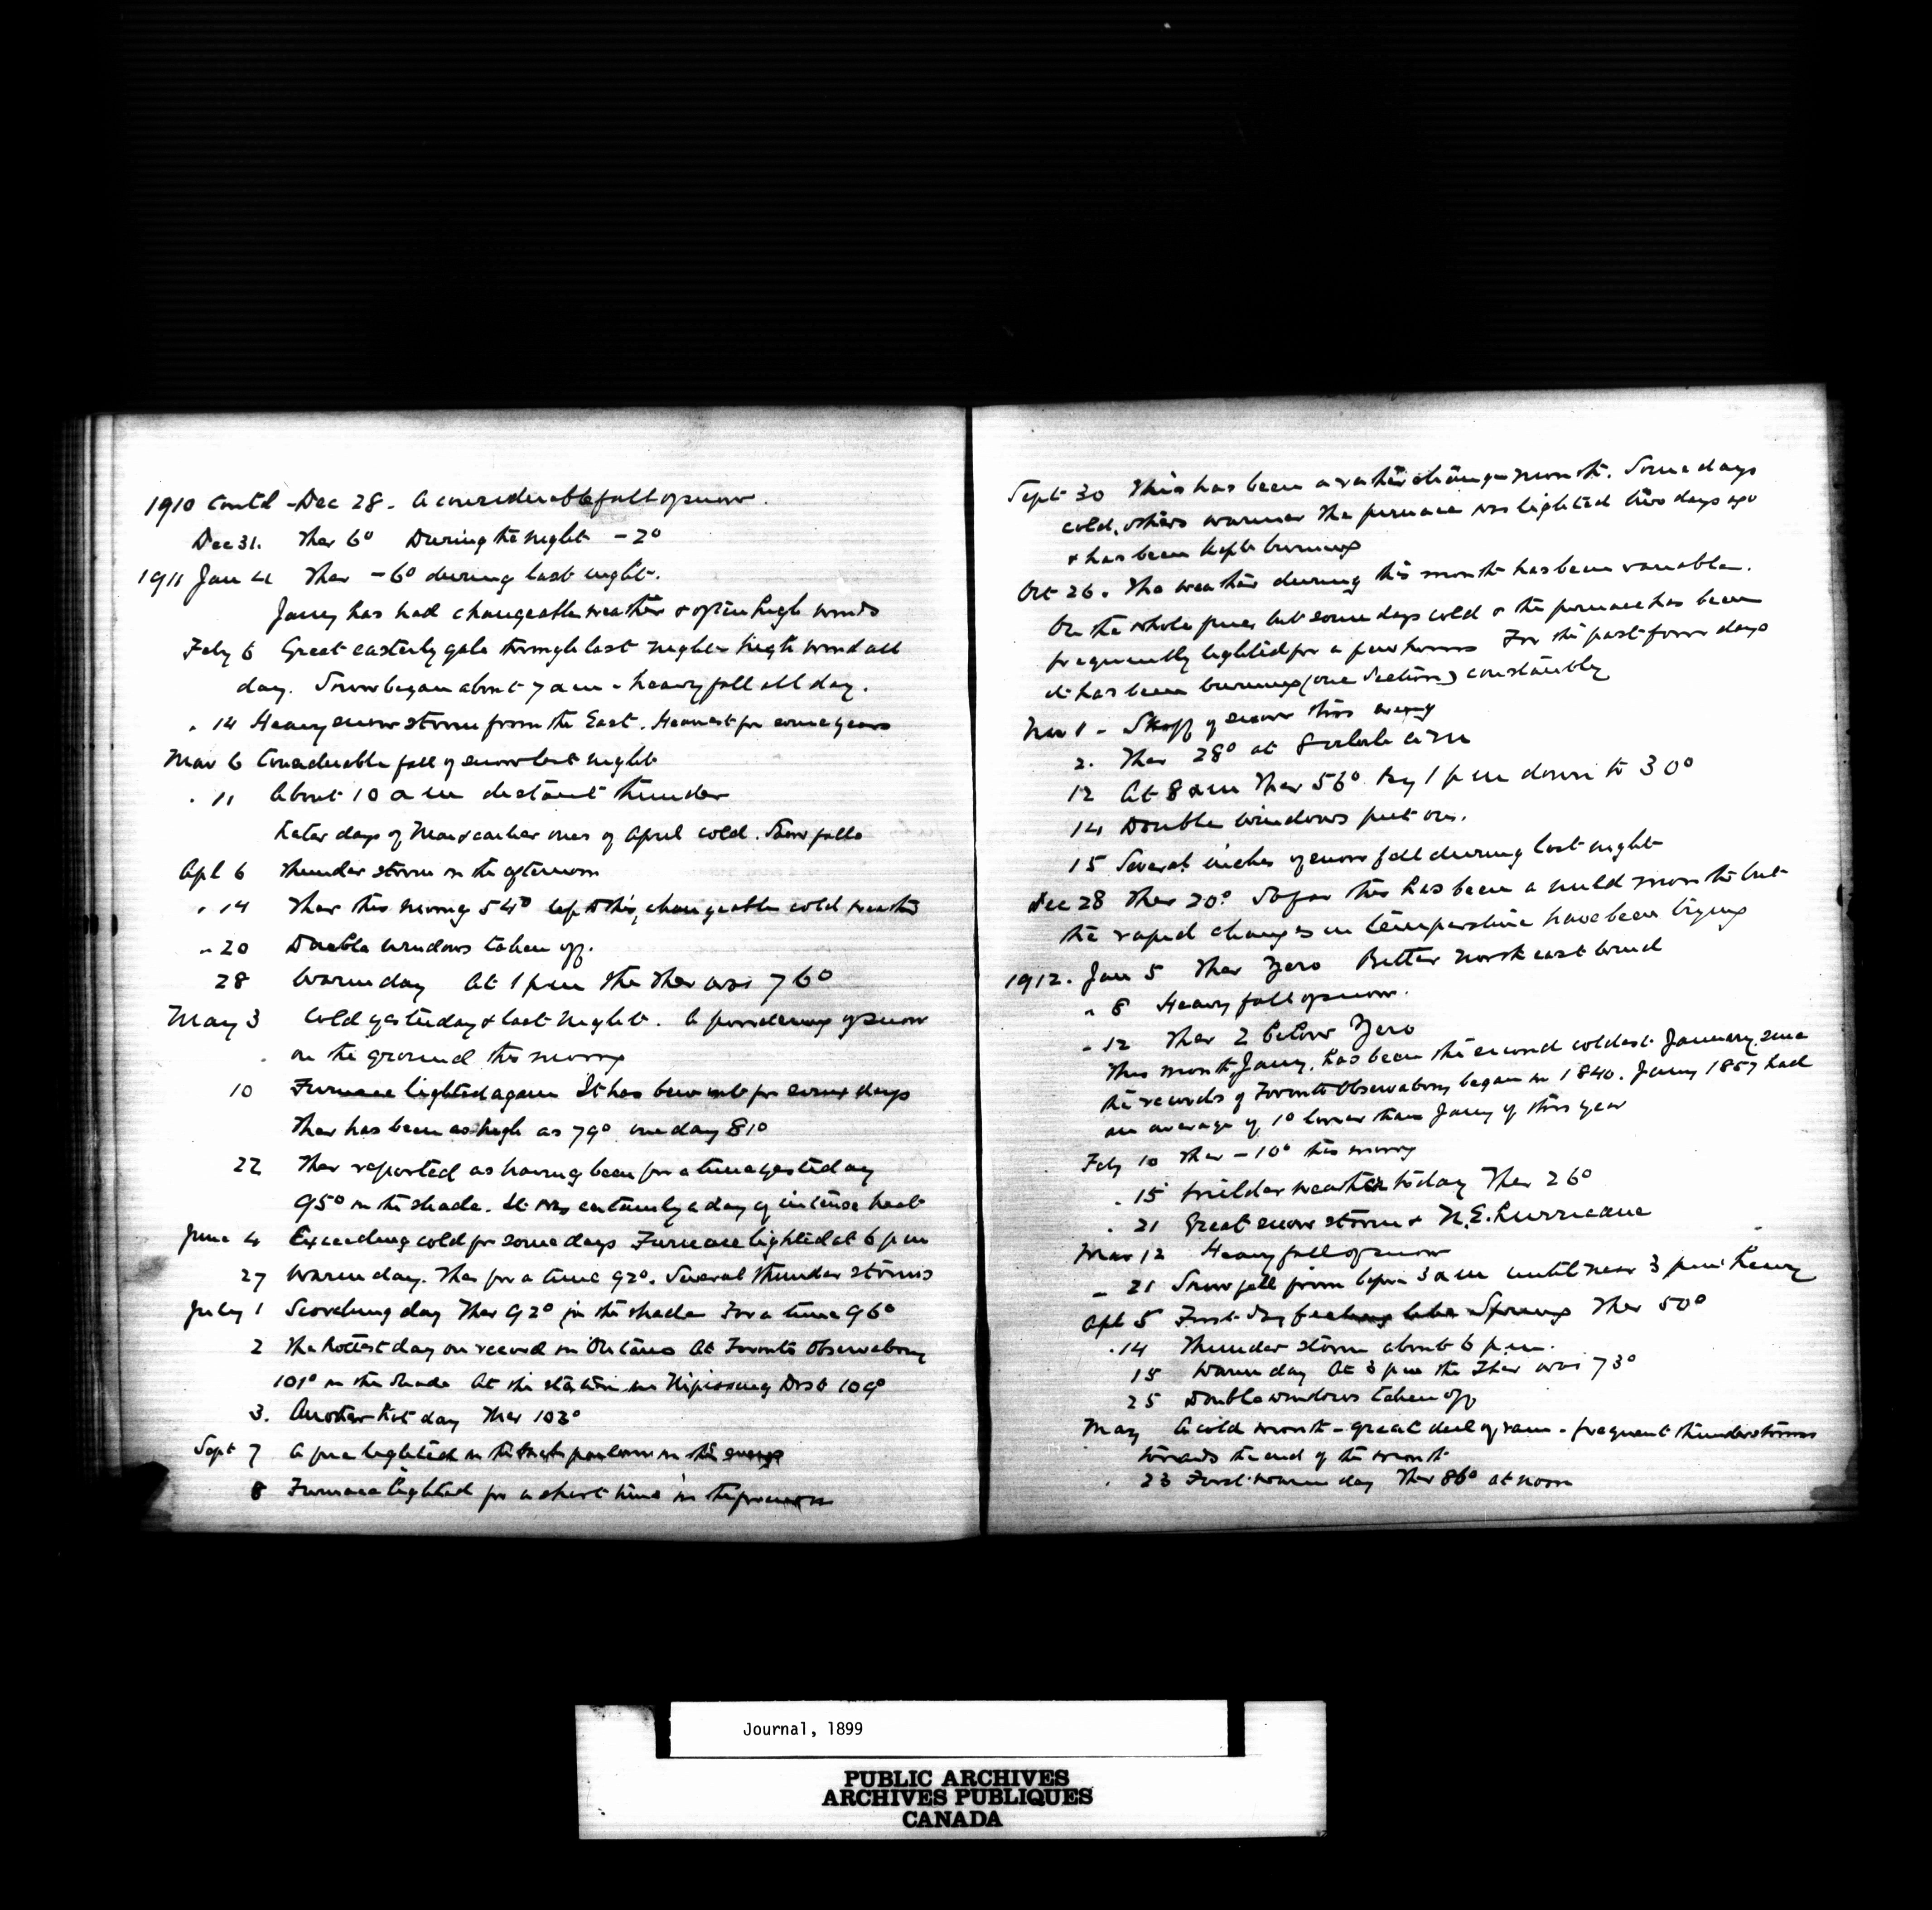 1910 Contd - Dec 28 - A considerable fall of snow.
Dec 31. Ther 6° During the night - 2°
1911 Jan 4 Ther - 6° during last night.
Jany has had changeable weather & often high winds
Feby 6 Great easterly gale through last night - high wind all
day. Snow began about 7 am - heavy fall all day.
" 14 Heavy snow storm from the East. Heaviest for some years
Mar 6 Considerable fall of snow last night
" 11 About 10 am distant thunder
Later days of Mar & earlier ones of April cold. Snow falls
Apl 6 Thunder storm in the afternoon
" 14 Ther this morng 54° up to this, changeable cold weather
" 20 Double windows taken off.
28 Warm day At 1 pm the Ther was 76°
May 3 Cold yesterday & last night. A powdering of snow
on the ground this morng
10 Furnace lighted again It has been out for some days
Ther has been as high as 79° one day 81°
22 Ther reported as having been for a time yesterday
95° in the shade. It was certainly a day of intense heat
June 4 Exceeding cold for some days Furnace lighted at 6 pm
27 Warm day. Ther for a time 92°. Several thunder storms
July 1 Scorching day Ther 92° in the shade For a time 96°
2 The hottest day on record in Ontario At Toronto Observatory
101° in the shade At the station in Nipissing Dist 109°
3. Another hot day Ther 103°
Sept 7 A fire lighted in the in the eveng
8 Furnace lighted for a short time in the forenoon
Sept 30 This has been a rather month. Some days
cold, others warmer The furnace was lighted two days ago
& has been kept burning
Oct 26. The weather during this month has been variable.
On the whole fine, but some days cold & the furnace has been
frequently lighted for a few hours For the past four days
it has been burning (one section) constantly
Nov 1 - of snow this eveng
2. Ther 28° at 8 o'clock
12 At 8 am Ther 56° By 1 pm down to 30°
14 Double windows put on.
15 Several inches of snow fell during last night
Dec 28 Ther 20° So far this has been a mild month but
the rapid changes in temperature have been trying
1912. Jan 5 Ther Zero Bitter north east wind
" 8 Heavy fall of snow.
" 12 Ther 2 below Zero
This month, Jany, has been the second coldest January since
the records of Toronto Observatory began in 1840. Jany 1857 had
an average of 1° lower than Jany of this year
Feby 10 Ther - 10° this morng
" 15 Milder weather today Ther 26°
" 21 Great snow storm & N.E. hurricane
Mar 12 Heavy fall of snow
" 21 Snow fell from before 3 am until near 3 pm: heavy
Apl 5 First day feeling like Spring Ther 50°
" 14 Thunder storm about 6 pm.
15 Warm day At 3 pm the Ther was 73°
25 Double windows taken off
May A cold month - great deal of rain - frequent thunderstorms
towards the end of the month
" 23 First warm day Ther 86° at noon
Journal, 1899
PUBLIC ARCHIVES
ARCHIVES PUBLIQUES
CANADA